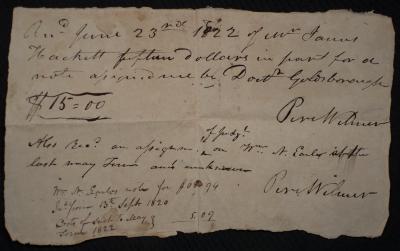 Rec.d June 23rd 1822 of Mr James
Hackett fifteen dollars in part for a
note assigned me by Doctr Goldsborough
$15=00
Pere Wilmer
of Judgt
Also Rec.d an assignmt on Wm N. Earles
last may Term
Pere Wilmer
Wm N. Earles note for $ 94
Int from 13th Sept 1820
Costs of suit to May
Term 1822 5.09